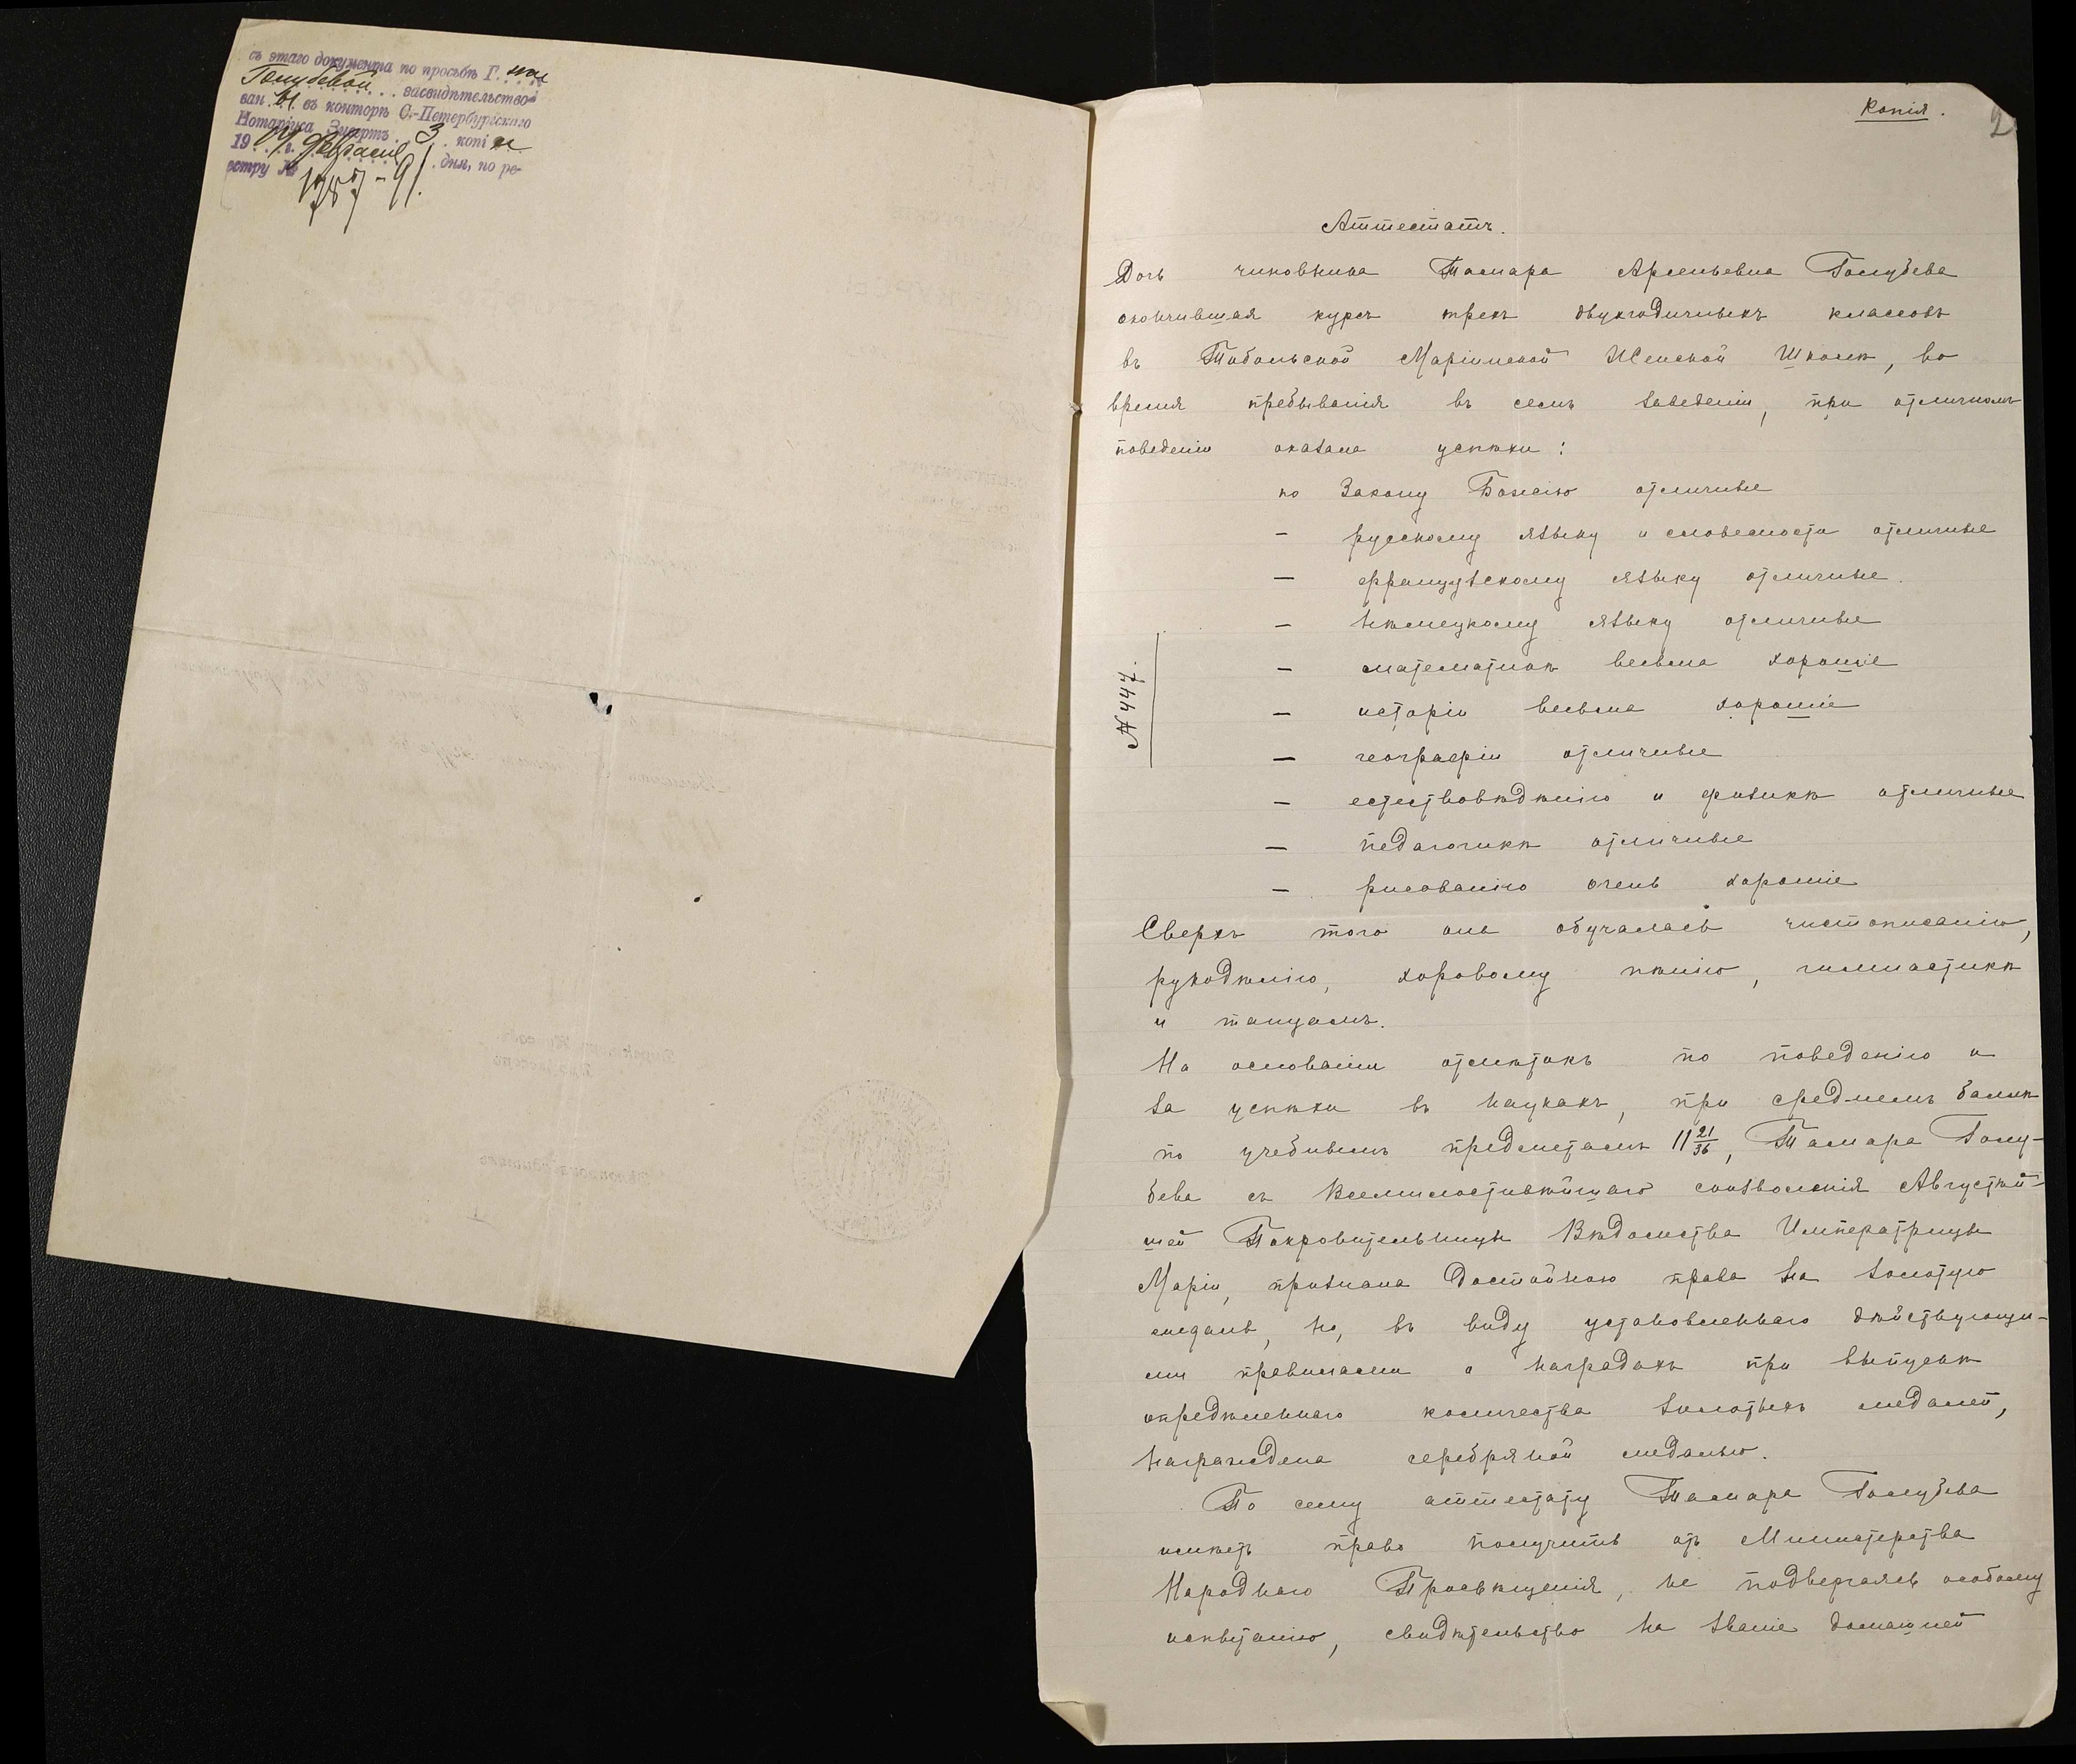 съ этаго документа по просьбѣ Г. жи
Голубевой засвидѣтельство-
ваны въ конторѣ С.-Петербургскаго
Нотаріуса 3 копіи
19 г. февраля дня, по ре-
естру №
1787-91.
Копія.
2
Аттестатъ.
Дочь чиновника Тамара Арсеньевна Голубева
окончившая курсъ трехъ двухгодичныхъ классовъ
въ Тобольской Маріинской Женской Школѣ, во
время пребыванія въ семъ заведеніи, при отличномъ
поведеніи оказала успѣхи:
по Закону Божію отличные
— русскому языку и словесности отличные
— французскому языку отличные.
— нѣмецкому языку отличные
— математикѣ весьма хорошіе
— исторіи весьма хорошіе
— географіи отличные
— естествовѣдѣнію и физикѣ отличные
— педагогикѣ отличные
— рисованію очень хорошіе
№ 447.
Сверхъ того она обучалась чистописанію,
рукодѣлію, хоровому пѣнію, гимнастикѣ
и танцамъ.
На основаніи отмѣтокъ по поведенію и
за успѣхи въ наукахъ, при среднемъ баллѣ
по учебнымъ предметамъ 11 21/36, Тамара Голу-
бева съ Всемилостивѣйшаго соизволенія Августѣй-
шей Покровительницы Вѣдомства Императрицы
Маріи, признана достойною права на золотую
медаль, но, въ виду установленнаго дѣйствующи-
ми правилами о наградахъ при выпускѣ
опредѣленнаго количества золотыхъ медалей,
награждена серебряной медалью.
По сему аттестату Тамара Голубева
имѣетъ право получить отъ Министерства
Народнаго Просвѣщенія, не подвергаясь особому
испытанію, свидѣтельство на званіе домашней